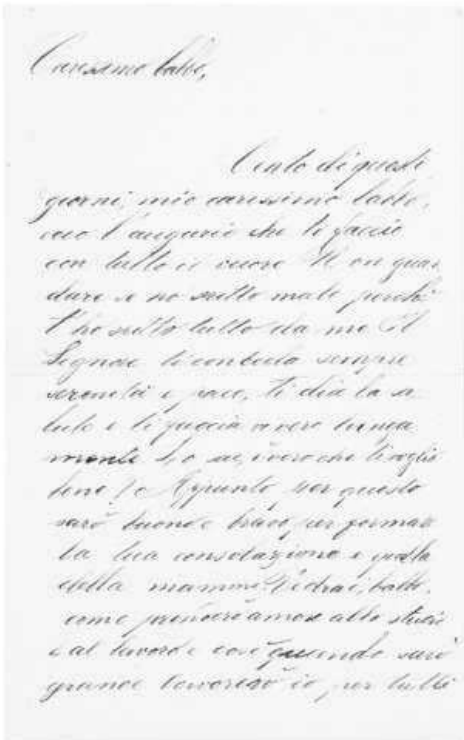 Carissimo babbo,
Cento di questi
giorni, mio carissimo babbo,
ecco l'augurio che ti faccio
con tutto il cuore. Non guar
dare se ho scritto male perchè
l'ho scritto tutto da me. Il
Signore ti conceda sempre
serenità e pace, ti dia la sa
lute e ti faccia vivere lunga
mente. Lo sai, vero che ti voglio
bene? Appunto per questo
sarò buono e bravo, per formare
la tua consolazione e quella
della mamma. Vedrai, babbo,
come prenderò amore allo studio
e al lavoro e così quando sarò
grande lavorerò io, per tutti